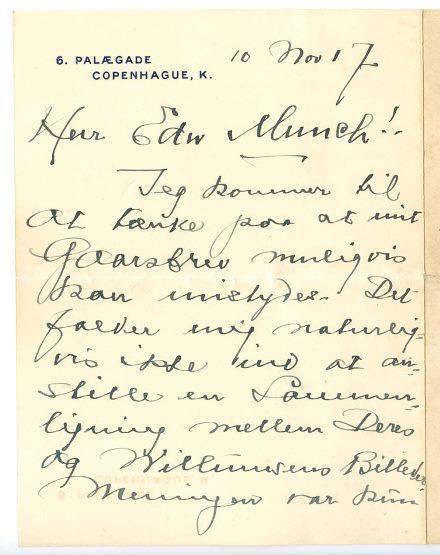 6. PALÆGADE
COPENHAGUE, K.
10 Nov 17
Herr Edv Munch!
Jeg kommer til
at tænke paa at mit
Gaarsbrev muligvis
kan mistydes. Det
falder mig naturlig-
vis ikke ind at an-
stille en Sammen-
ligning mellem Deres
og Willumsens Billeder
Meningen var kun